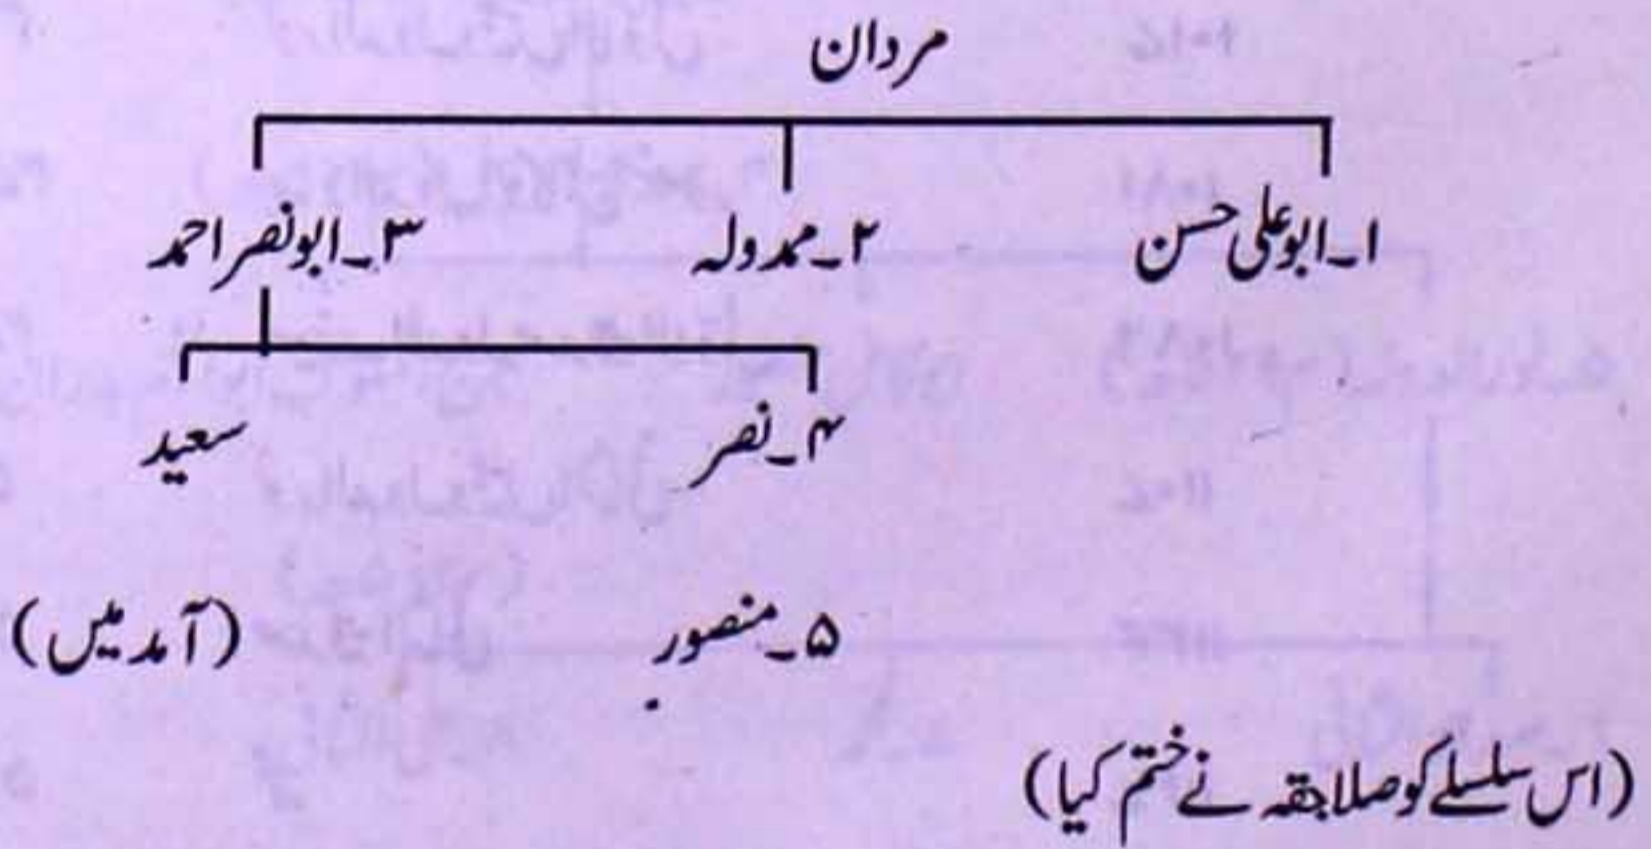 مردان
۱۔ابوعلی حسن ۲۔ممدولہ ۳۔ابونصراحمد
۴۔نصر سعید
۵۔منصور (آمدمیں)
(اس سلسلے کوصلاجقہ نے ختم کیا)